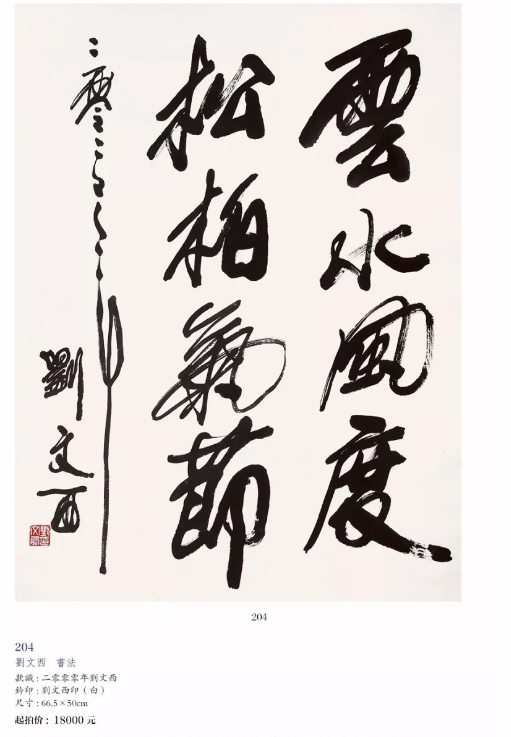 雲水風度
松柏氣節
二零零零年
劉文西
204
204
劉文西 書法
款識：二零零零年劉文西
鈐印：劉文西印（白）
尺寸：66.5×50cm
起拍价：18000 元